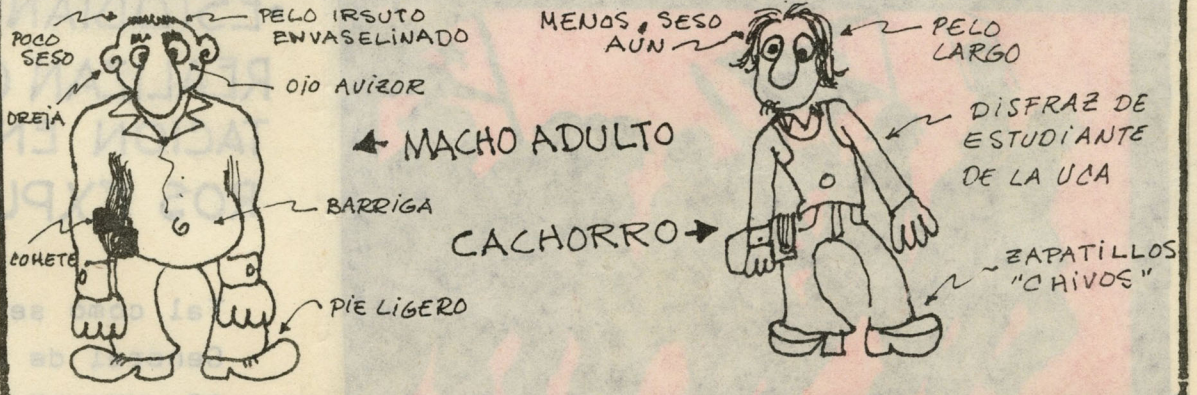 POCO
SESO
PELO IRSUTO
ENVASELINADO
OJO AVIZOR
OREJA
MACHO ADULTO
BARRIGA
COHETE
PIE LIGERO
MENOS SESO
AÚN
PELO
LARGO
DISFRAZ DE
ESTUDIANTE
DE LA UCA
CACHORRO
ZAPATILLOS
"CHIVOS"